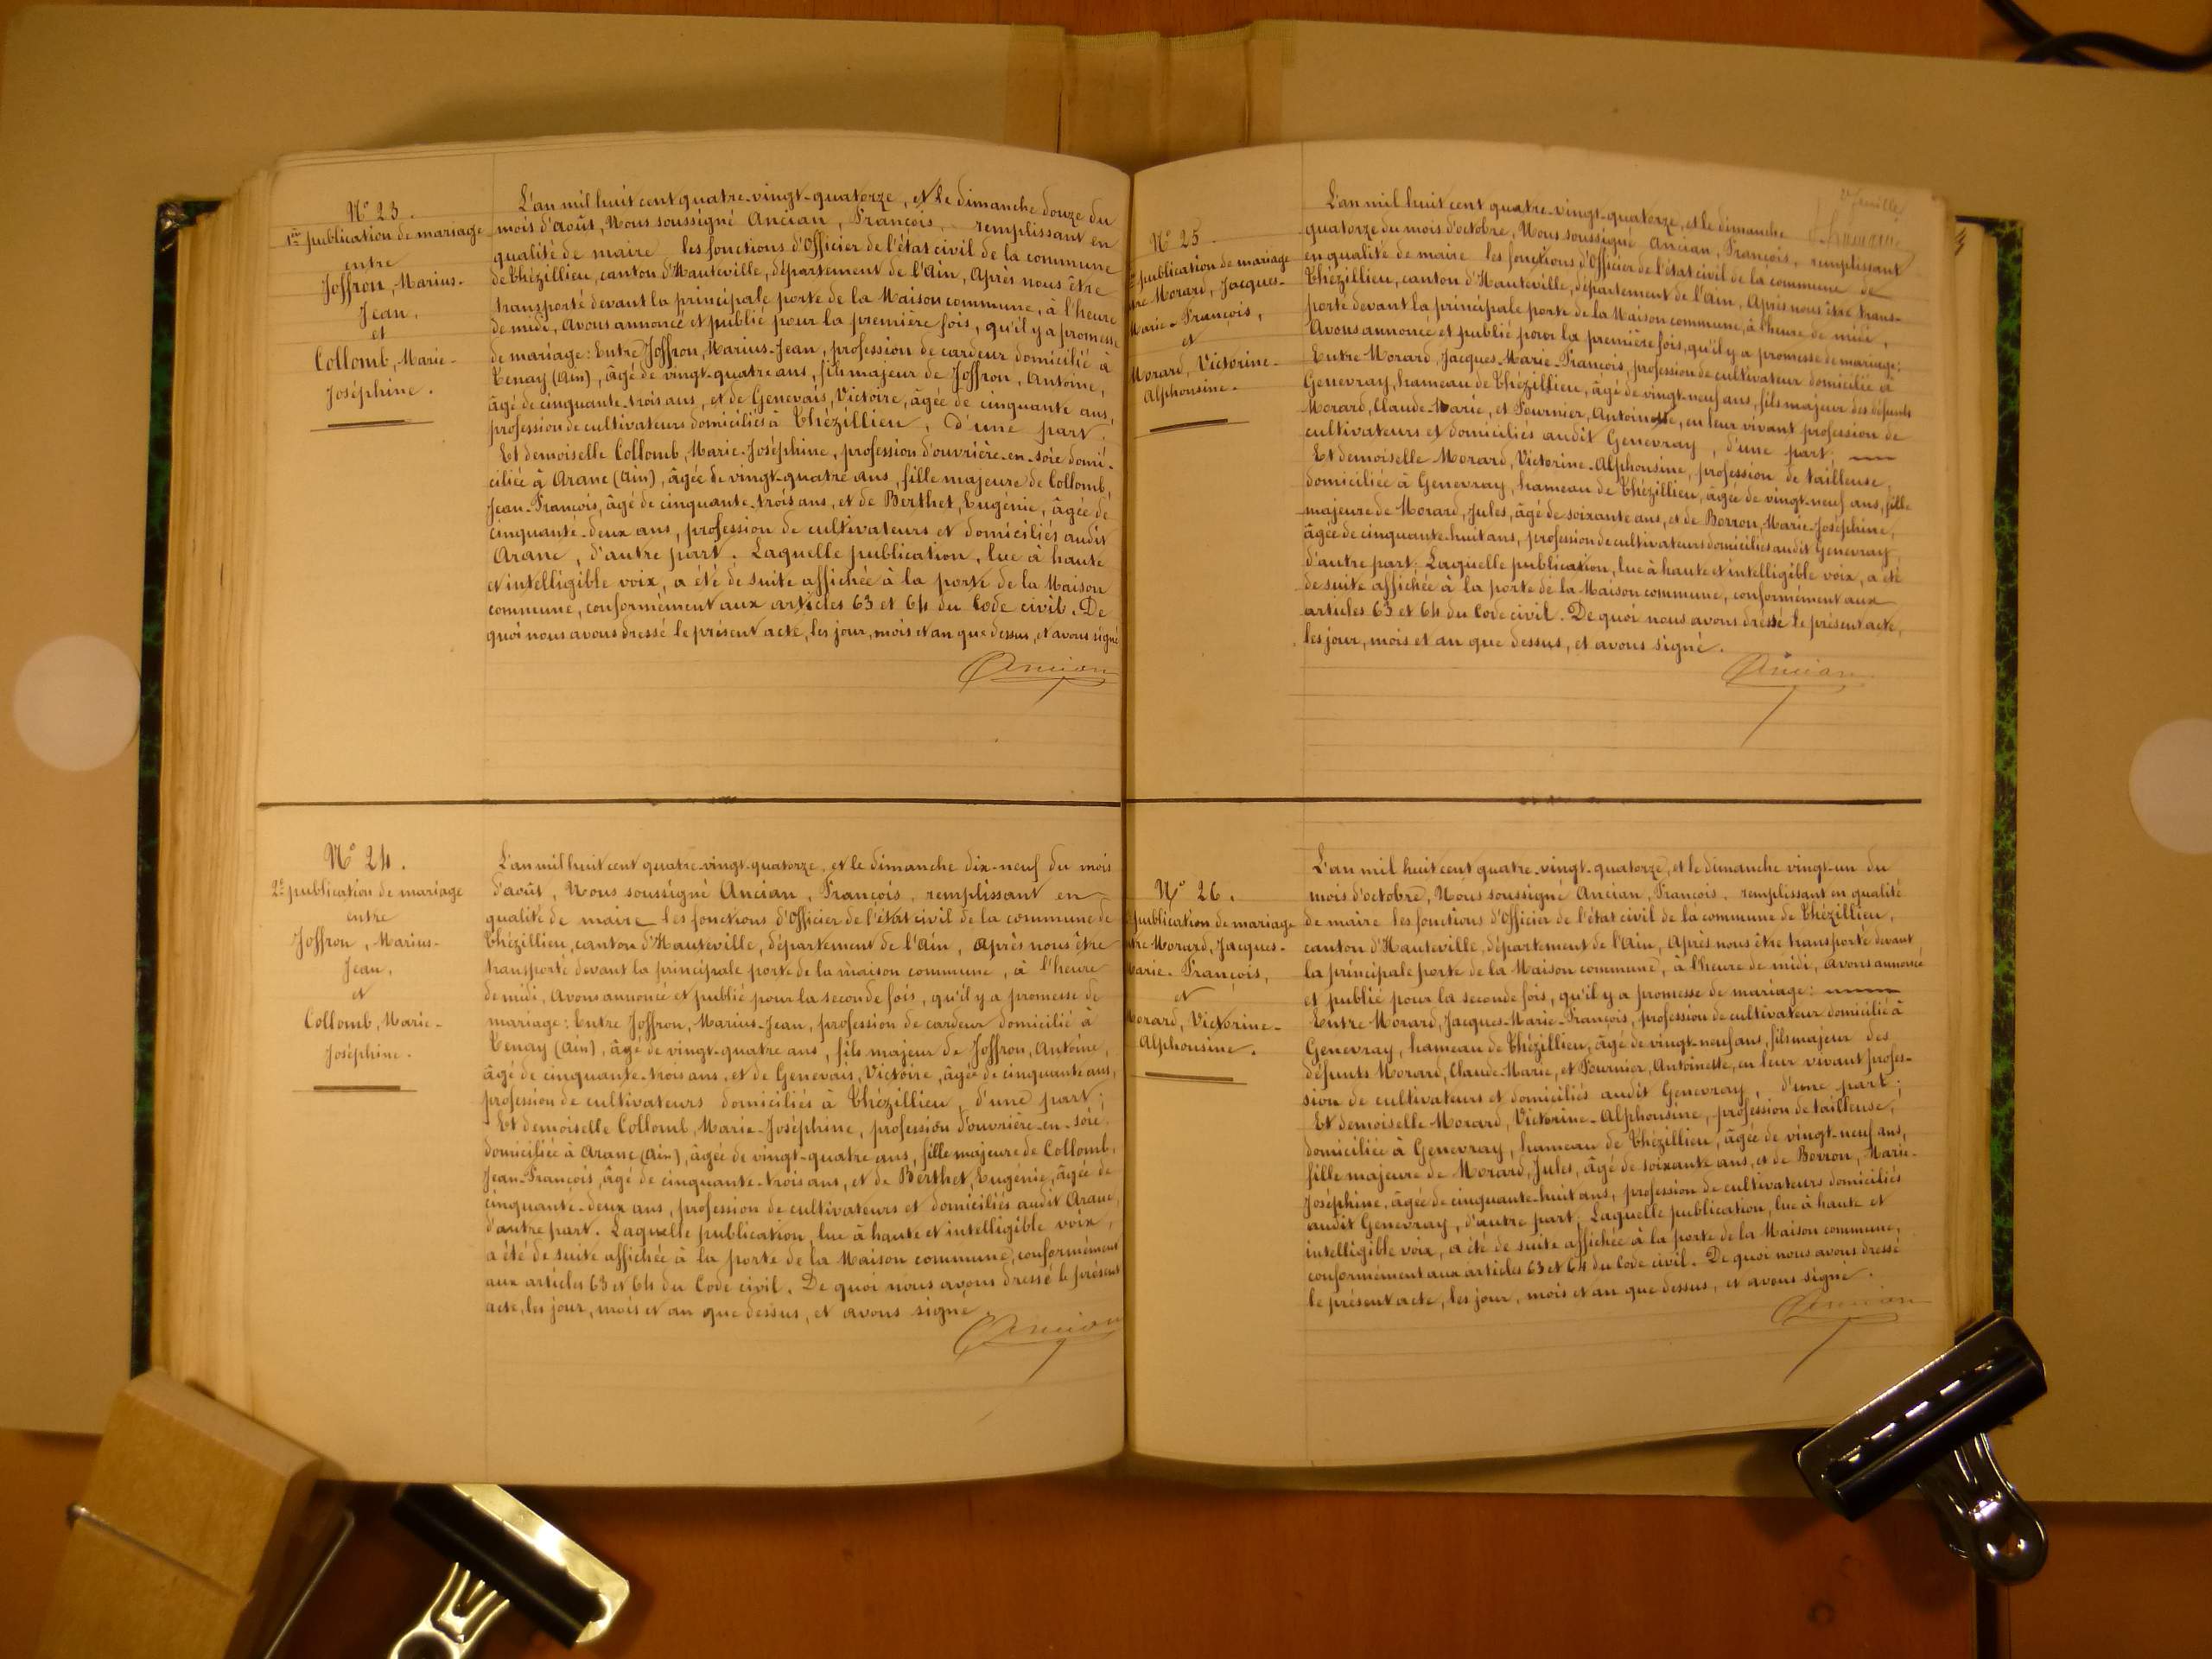 N° 23.
1re publication de mariage
entre
Joffron, Marius-
Jean,
et
Collomb, Marie-
Joséphine.
L'an mil huit cent quatre-vingt-quatorze, et le dimanche douze du
mois d'août, Nous soussigné Ancian, François, remplissant en
qualité de maire les fonctions d'Officier de l'état civil de la commune
de Thézillieu, canton d'Hauteville, département de l'Ain, Après nous être
transporté devant la principale porte de la Maison commune, à l'heure
de midi, Avons annoncé et publié pour la première fois, qu'il y a promesse
de mariage: Entre Joffron, Marius-Jean, profession de cardeur domicilié à
Tenay (Ain), âgé de vingt-quatre ans, fils majeur de Joffron, Antoine,
âgé de cinquante-trois ans, et de Genevais, Victoire, âgée de cinquante ans,
profession de cultivateurs domiciliés à Thézillieu, d'une part;
Et demoiselle Collomb, Marie-Joséphine, profession d'ouvrière-en-soie domi-
ciliée à Aranc (Ain), âgée de vingt-quatre ans, fille majeure de Collomb,
Jean-François, âgé de cinquante-trois ans, et de Berthet, Eugénie, âgée de
cinquante-deux ans, profession de cultivateurs et domiciliés audit
Aranc, d'autre part. Laquelle publication, lue à haute
et intelligible voix, a été de suite affichée à la porte de la Maison
commune, conformément aux articles 63 et 64 du Code civil. De
quoi nous avons dressé le présent acte, les jour, mois et an que dessus, et avons signé
Ancian
N° 24.
2e publication de mariage
entre
Joffron, Marius-
Jean,
et
Collomb, Marie-
Joséphine.
L'an mil huit cent quatre-vingt-quatorze, et le dimanche dix-neuf du mois
d'août, Nous soussigné Ancian, François, remplissant en
qualité de maire les fonctions d'Officier de l'état civil de la commune de
Thézillieu, canton d'Hauteville, département de l'Ain, Après nous être
transporté devant la principale porte de la maison commune, à l'heure
de midi, Avons annoncé et publié pour la seconde fois, qu'il y a promesse de
mariage: Entre Joffron, Marius-Jean, profession de cardeur domicilié à
Tenay (Ain), âgé de vingt-quatre ans, fils majeur de Joffron, Antoine,
âgé de cinquante-trois ans, et de Genevais, Victoire, âgée de cinquante ans,
profession de cultivateurs domiciliés à Thézillieu, d'une part;
Et demoiselle Collomb, Marie-Joséphine, profession d'ouvrière-en-soie,
domiciliée à Aranc (Ain), âgée de vingt-quatre ans, fille majeure de Collomb,
Jean-François, âgé de cinquante-trois ans, et de Berthet, Eugénie, âgée de
cinquante-deux ans, profession de cultivateurs et domiciliés audit Aranc,
d'autre part. Laquelle publication, lue à haute et intelligible voix,
a été de suite affichée à la porte de la Maison commune, conformément
aux articles 63 et 64 du Code civil. De quoi nous avons dressé le présent
acte, les jour, mois et an que dessus, et avons signé.
Ancian
2e feuille
N° 25.
publication de mariage
Morard, Jacques-
Marie-François,
et
Morard, Victorine-
Alphonsine.
L'an mil huit cent quatre-vingt-quatorze, et le dimanche
quatorze du mois d'octobre, Nous soussigné Ancian, François, remplissant
en qualité de maire les fonctions d'Officier de l'état civil de la commune de
Thézillieu, canton d'Hauteville, département de l'Ain, Après nous être trans-
porté devant la principale porte de la Maison commune, à l'heure de midi,
Avons annoncé et publié pour la première fois, qu'il y a promesse de mariage:
Entre Morard, Jacques-Marie-François, profession de cultivateur domicilié à
Genevray, hameau de Thézillieu, âgé de vingt-neuf ans, fils majeur des défunts
Morard, Claude-Marie, et Fournier, Antoinette, en leur vivant profession de
cultivateurs et domiciliés audit Genevray, d'une part;
Et demoiselle Morard, Victorine-Alphonsine, profession de tailleuse,
domiciliée à Genevray, hameau de Thézillieu, âgée de vingt-neuf ans, fille
majeure de Morard, Jules, âgé de soixante ans, et de Borron, Marie-Joséphine,
âgée de cinquante-huit ans, profession de cultivateurs domiciliés audit Genevray,
d'autre part. Laquelle publication, lue à haute et intelligible voix, a été
de suite affichée à la porte de la Maison commune, conformément aux
articles 63 et 64 du Code civil. De quoi nous avons dressé le présent acte,
les jour, mois et an que dessus, et avons signé.
Ancian
N° 26.
publication de mariage
Morard, Jacques-
Marie-François,
et
Morard, Victorine-
Alphonsine.
L'an mil huit cent quatre-vingt-quatorze, et le dimanche vingt-un du
mois d'octobre, Nous soussigné Ancian, François, remplissant en qualité
de maire les fonctions d'Officier de l'état civil de la commune de Thézillieu,
canton d'Hauteville, département de l'Ain, Après nous être transporté devant
la principale porte de la Maison commune, à l'heure de midi, Avons annoncé
et publié pour la seconde fois, qu'il y a promesse de mariage:
Entre Morard, Jacques-Marie-François, profession de cultivateur domicilié à
Genevray, hameau de Thézillieu, âgé de vingt-neuf ans, fils majeur des
défunts Morard, Claude-Marie, et Fournier, Antoinette, en leur vivant profes-
sion de cultivateurs et domiciliés audit Genevray, d'une part;
Et demoiselle Morard, Victorine-Alphonsine, profession de tailleuse,
domiciliée à Genevray, hameau de Thézillieu, âgée de vingt-neuf ans,
fille majeure de Morard, Jules, âgé de soixante ans, et de Borron, Marie-
Joséphine, âgée de cinquante-huit ans, profession de cultivateurs domiciliés
audit Genevray, d'autre part. Laquelle publication, lue à haute et
intelligible voix, a été de suite affichée à la porte de la Maison commune,
conformément aux articles 63 et 64 du Code civil. De quoi nous avons dressé
le présent acte, les jour, mois et an que dessus, et avons signé.
Ancian